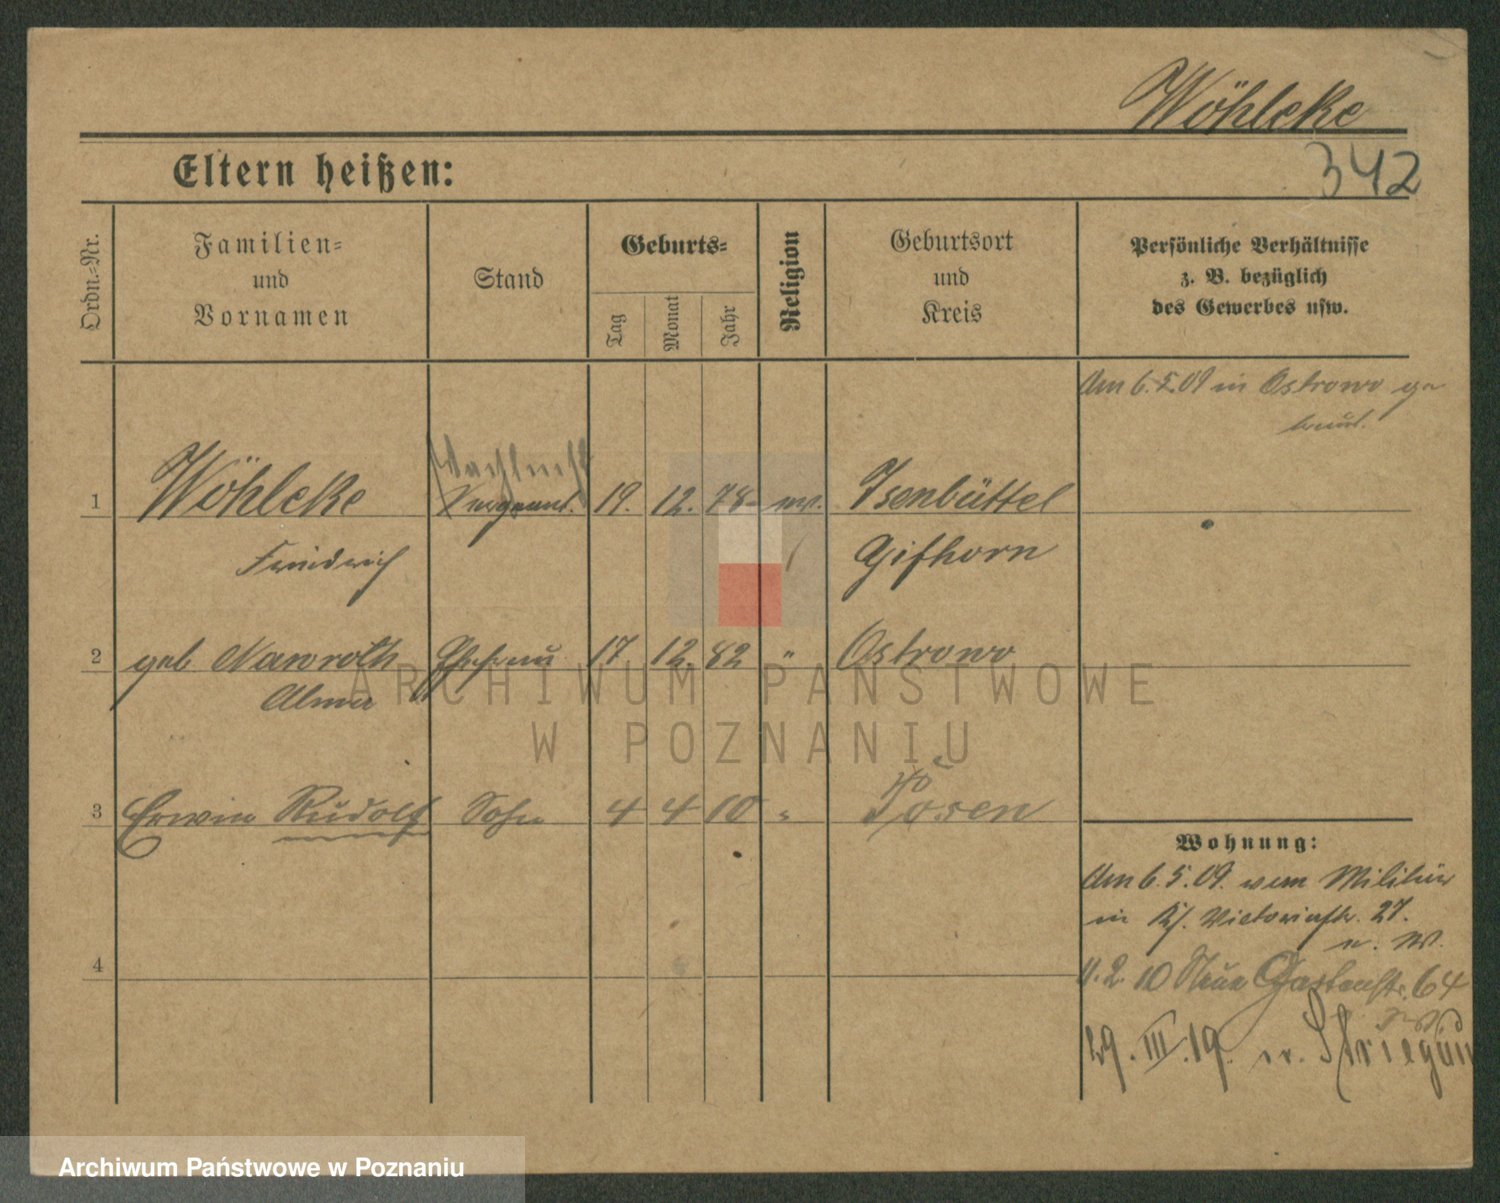 Wöhleke
342
Eltern heißen:
Ordn.-Nr.
Familien-
und
Vornamen
Stand
Geburts-
Tag
Monat
Jahr
Religion
Geburtsort
und
Kreis
Persönliche Verhältnisse
z. B. bezüglich
des Gewerbes usw.
Am 6.5.09 in Ostrowo ge
traut.
1 Wöhleke Sergeant. 19. 12. 78 Isenbüttel
Friedrich Gifhorn
2 geb Nawroth Ehefrau 17 12. 82 " Ostrowo
Alma
3 Erwin Rudolf Sohn 4 4 10 " Posen
Wohnung:
Am 6.5.09. vom Militär
in Victoriastr. 27.
n. W.
10 Neue Gartenstr. 64
4
29. III. 19. n. Striegau
ARCHIWUM PAŃSTWOWE
W POZNANIU
Archiwum Państwowe w Poznaniu